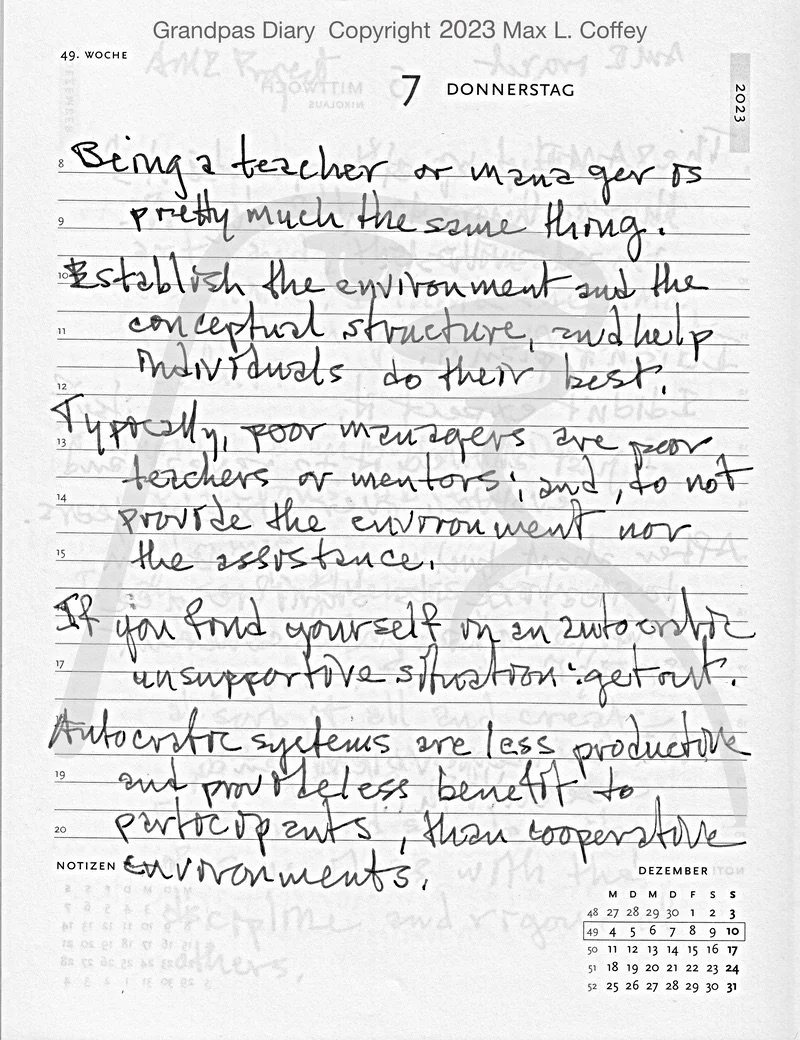 Grandpas Diary Copyright 2023 Max L. Coffey
49. WOCHE
7 DONNERSTAG
2023
MITTWOCH
NIKOLAUS
8 Being a teacher or manager is
9 pretty much the same thing.
10 Establish the environment and the
11 conceptual structure, and help
individuals do their best.
12
13 Typically, poor managers are poor
teachers or mentors; and, do not
14 provide the environment nor
15 the assistance.
If you find yourself in an autocratic
17 unsupportive situation: get out.
Autocratic systems are less productive
19 and provide less benefit to
20 participants, than cooperative
NOTIZEN environments.
DEZEMBER
M D M D F S S
48 27 28 29 30 1 2 3
49 4 5 6 7 8 9 10
50 11 12 13 14 15 16 17
51 18 19 20 21 22 23 24
52 25 26 27 28 29 30 31